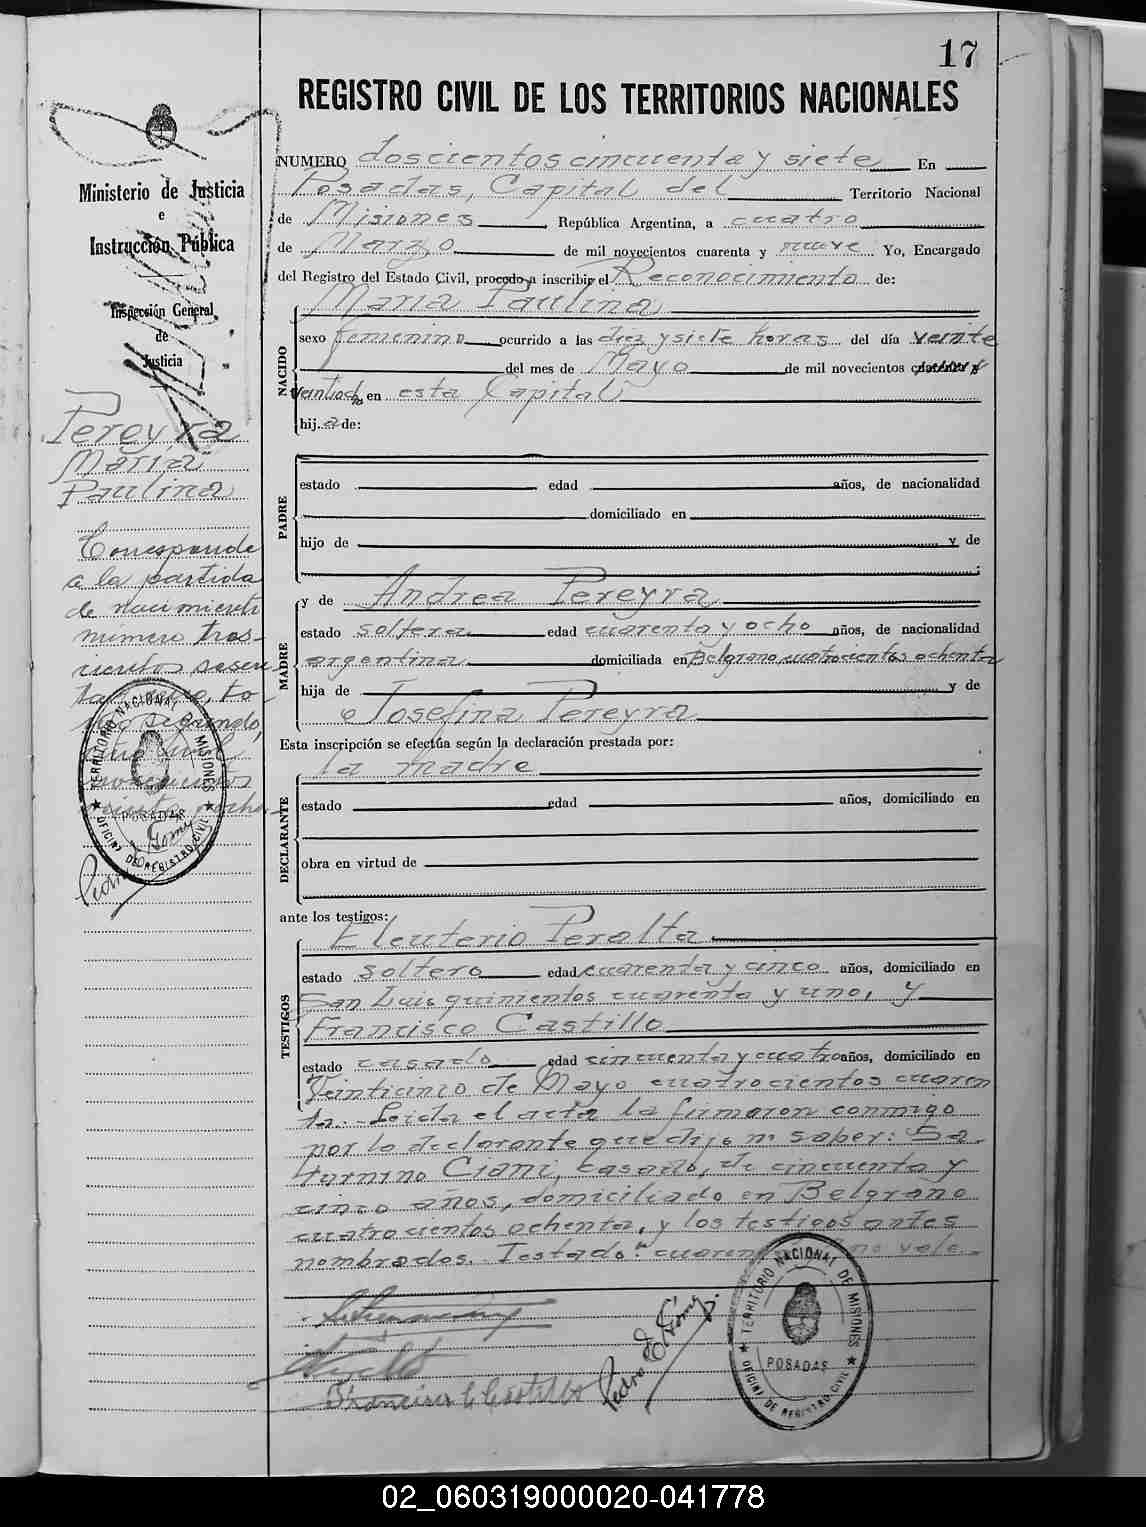 17
REGISTRO CIVIL DE LOS TERRITORIOS NACIONALES
Ministerio de Justicia
e
Instrucción Pública
Inspección General
de
Justicia
Pereyra
María
Paulina
Corresponde
a la partida
de nacimiento
número tres-
cientos sesen
POSADAS
TERRITORIO NACIONAL DE MISIONES
OFICINA DE REGISTRO CIVIL
NUMERO doscientos cincuenta y siete En
Posadas, Capital del Territorio Nacional
de Misiones República Argentina, a cuatro
de Marzo de mil novecientos cuarenta y nueve Yo, Encargado
del Registro del Estado Civil, procedo a inscribir el Reconocimiento de:
María Paulina
NACIDO
sexo femenino ocurrido a las diez y siete horas del día veinte
del mes de Mayo de mil novecientos
en esta Capital
hij a de:
PADRE
estado edad años, de nacionalidad
domiciliado en
hijo de y de
;
MADRE
y de Andrea Pereyra
estado soltera edad cuarenta y ocho años, de nacionalidad
argentina domiciliada en Belgrano cuatrocientos ochenta
hija de y de
Josefina Pereyra
Esta inscripción se efectúa según la declaración prestada por:
la madre
DECLARANTE
estado edad años, domiciliado en
obra en virtud de
ante los testigos:
TESTIGOS
Eleuterio Peralta
estado soltero edad cuarenta y cinco años, domiciliado en
San Luis quinientos cuarenta y uno, y
Francisco Castillo
estado casado edad cincuenta y cuatro años, domiciliado en
Veinticinco de Mayo cuatrocientos cuaren
ta.- Leida el acta la firmaron conmigo
por la declarante que dijo no saber: Sa-
turnino Ciani, casado, de cincuenta y
cinco años, domiciliado en Belgrano
cuatrocientos ochenta, y los testigos antes
nombrados. Testado: cuaren no vale.-
Francisco C Castillo
Pedro de Gomez
TERRITORIO NACIONAL DE MISIONES
POSADAS
OFICINA DE REGISTRO CIVIL
02_060319000020-041778